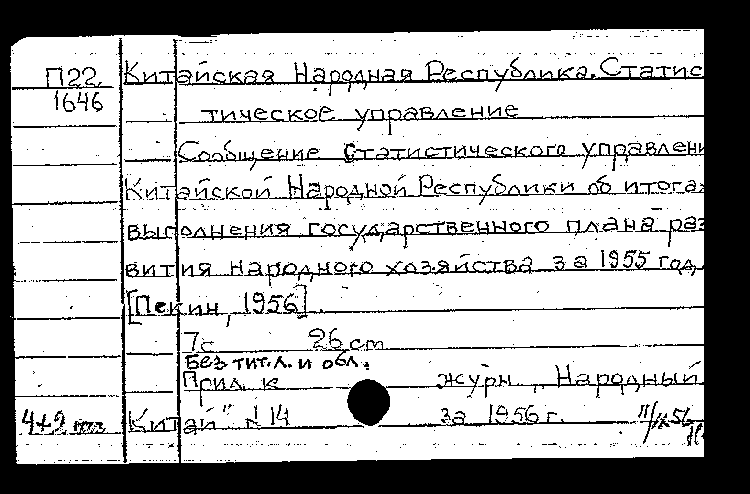 П22
1646
Китайская Народная Республика. Статис
тическое управление
Сообщение Статистического управлени
Китайской Народной Республики об итога
выполнения государственного плана раз
вития народного хозяйства за 1955 год
[Пекин, 1956]
7с 26 cm
Без тит. л. и обл.
Прил. к журн „Народный
Китай" N 14 за 1956 г.
4+2